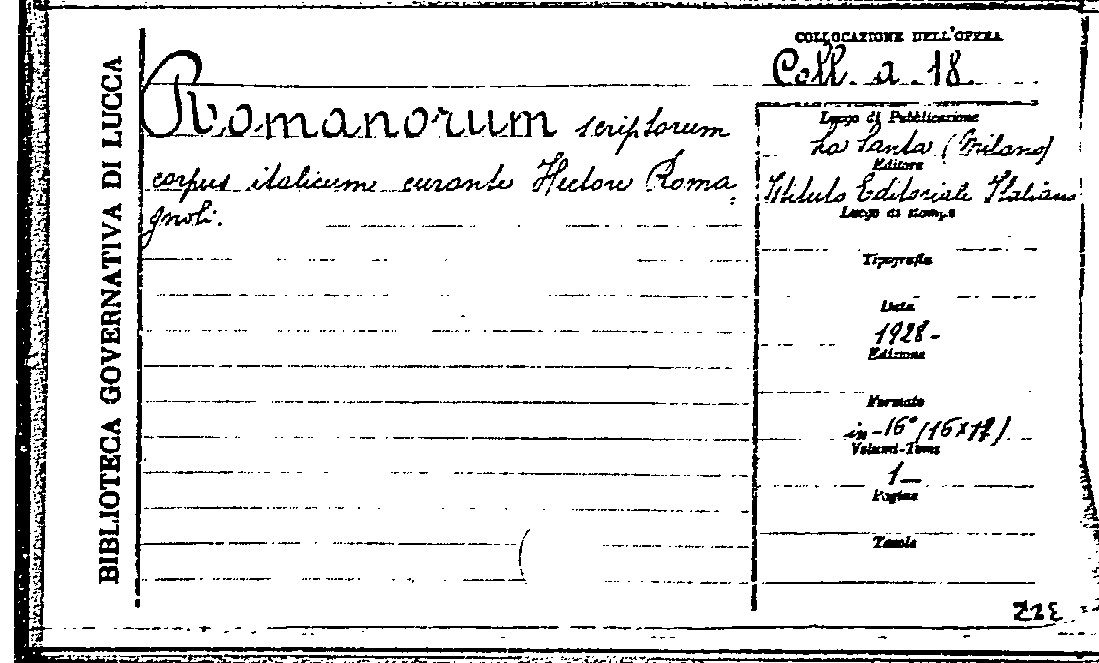 BIBLIOTECA GOVERNATIVA DI LUCCA
Romanorum scriptorum
corpus italicum curante Hectore Roma
gnoli.
COLLOCAZIONE DELL'OPERA
Coll. a. 18.
Luogo di Pubblicazione
La Santa (Milano)
Editore
Istituto Editoriale Italiano
Luogo di stampa
Tipografia
Data
1928-
Edizione
Formato
in-16° (16x12)
Volumi-Tomo
1—
Pagine
Tavole